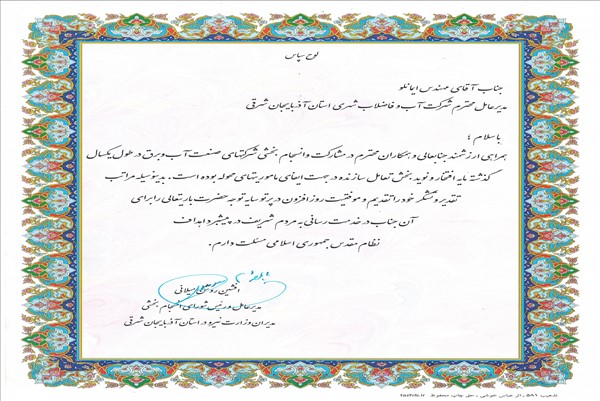 لوح سپاس
جناب آقای مهندس ایمانلو
مدیرعامل محترم شرکت آب و فاضلاب شهری استان آذربایجان شرقی
با سلام ؛
همراهی ارزشمند جنابعالی و همکاران محترم در مشارکت و انسجام بخشی شرکتهای صنعت آب و برق در طول یکسال
گذشته مایه افتخار و نوید بخش تعامل سازنده در جهت ایفای ماموریتهای محوله بوده است . بدینوسیله مراتب
تقدیر و تشکر خود را تقدیم و موفقیت روز افزون در پرتو سایه توجه حضرت باریتعالی را برای
آن جناب در خدمت رسانی به مردم شریف در پیشبرد اهداف
نظام مقدس جمهوری اسلامی مسئلت دارم .
افشین روشن میلانی
مدیرعامل و رئیس شورای انسجام بخشی
مدیران وزارت نیرو در استان آذربایجان شرقی
تذهیب ۵۹۱ ، اثر عباس خوشی ، حق چاپ محفوظ